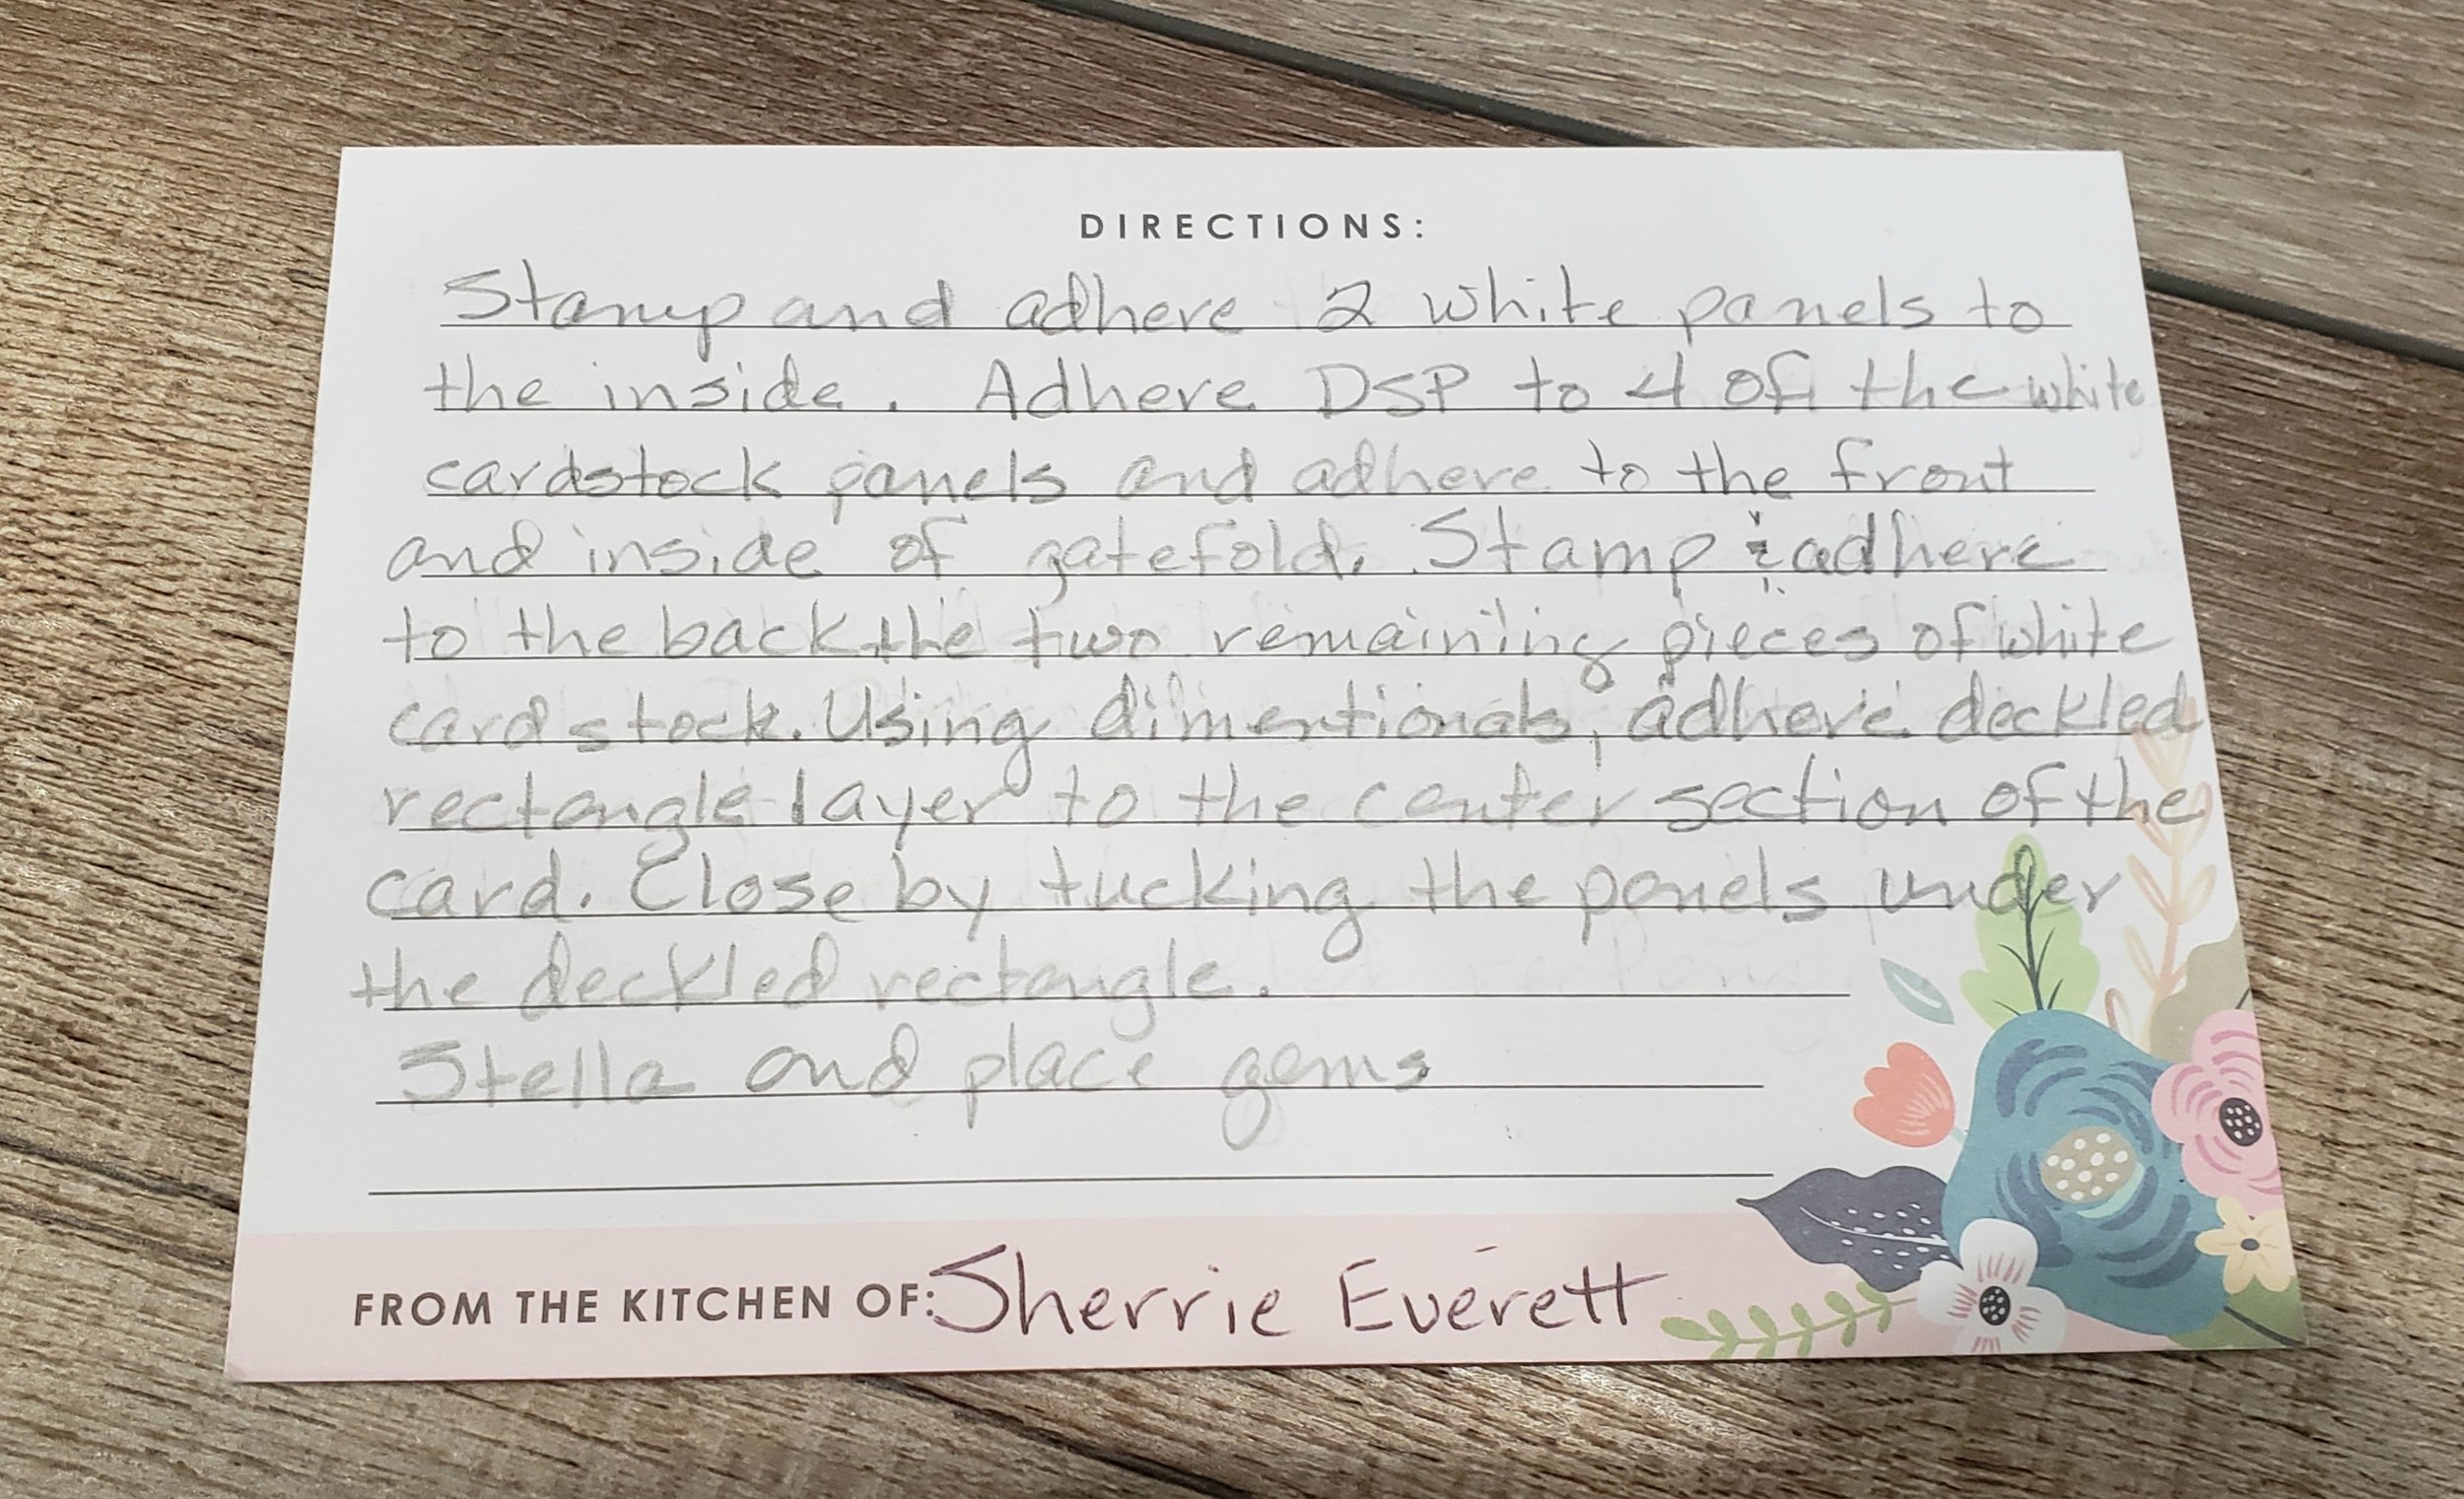 DIRECTIONS:
Stamp and adhere 2 white panels to
the inside. Adhere DSP to 4 of the white
cardstock panels and adhere to the front
and inside of gatefold. Stamp & adhere
to the back the two remaining pieces of white
cardstock. Using dimentionals, adhere deckled
rectangle layer to the center section of the
card. Close by tucking the panels under
the deckled rectangle.
Stella and place gems
FROM THE KITCHEN OF: Sherrie Everett